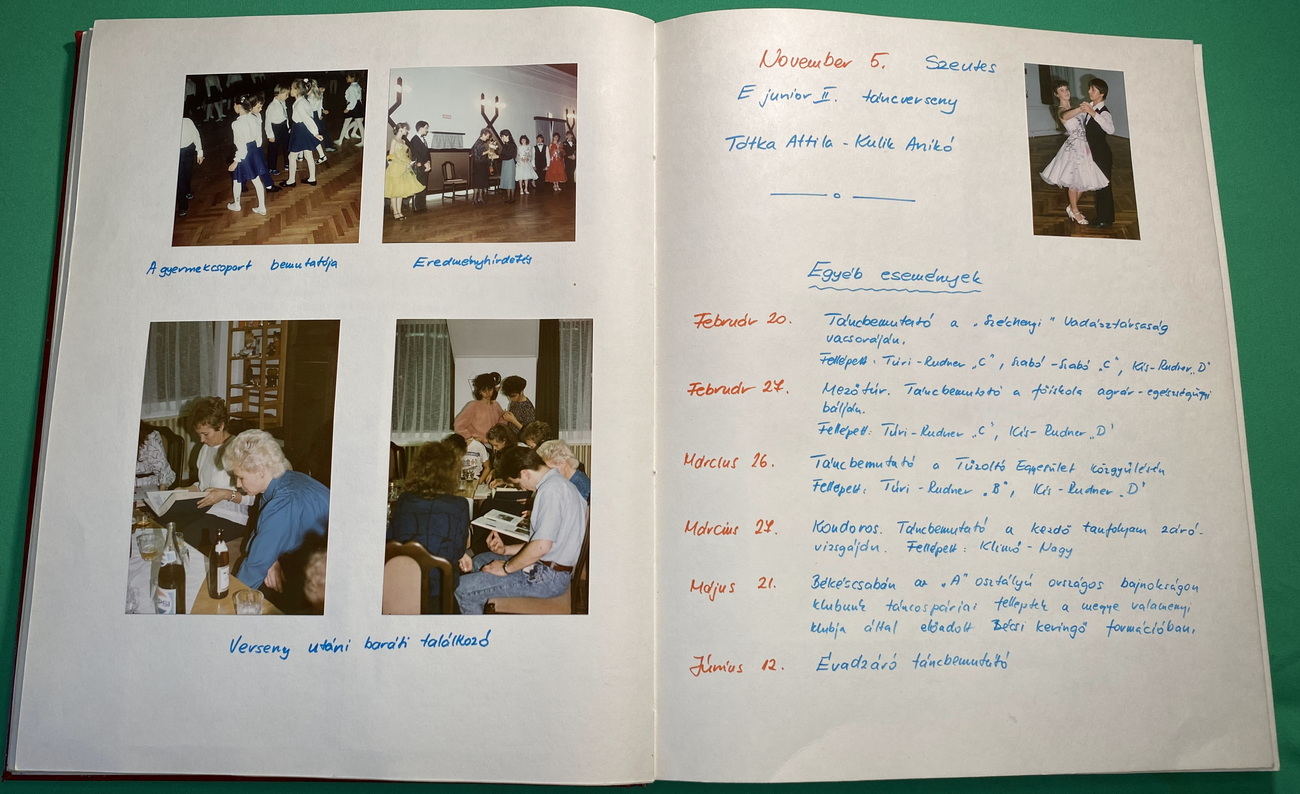 A gyermekcsoport bemutatója
Eredményhirdetés
Verseny utáni baráti találkozó
November 5. Szentes
E junior II. táncverseny
Tótka Attila - Kulik Anikó
Egyéb események
Február 20. Táncbemutató a „Széchenyi" Vadásztársaság
vacsoráján.
Fellépett: Túri-Rudner „C", Szabó-Szabó „C", Kis-Rudner „D"
Február 27. Mezőtúr. Táncbemutató a főiskola agrár-egészségügyi
bálján.
Fellépett: Túri-Rudner „C", Kis-Rudner „D"
Március 26. Táncbemutató a Tűzoltó Egyesület közgyűlésén
Fellépett: Túri-Rudner „B", Kis-Rudner „D"
Március 27. Kondoros. Táncbemutató a kezdő tanfolyam záró-
vizsgáján. Fellépett: Klimó-Nagy
Május 21. Békéscsabán az „A" osztályú országos bajnokságon
klubunk táncospárjai felléptek a megye valamenyi
klubja által előadott Bécsi keringő formációban.
Június 12. Évadzáró táncbemutató